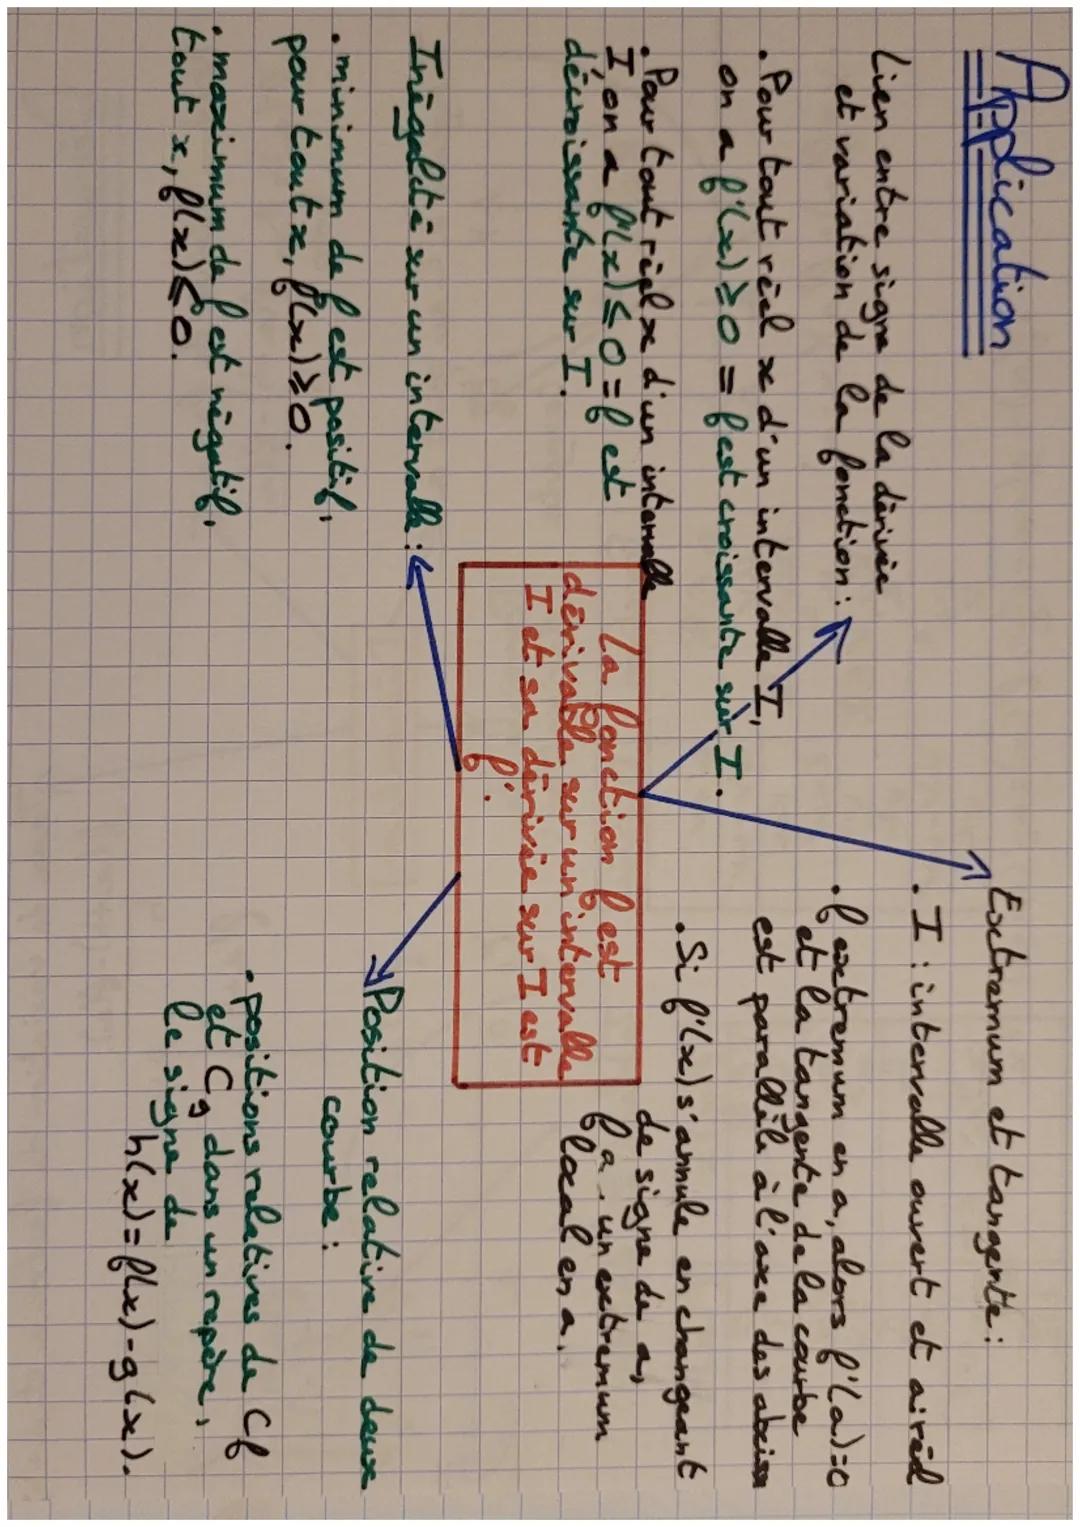 Application
Lien entre signe de la dérivée
et variation de la fonction :
• Pour tout réel x d'un intervalle I,
on a f'(x) ≥ 0 = f est croissante sur I.
• Pour tout réel x d'un intervalle
I, on a f'(x) ≤ 0 = f est
décroissante sur I.
Extremum et tangente :
• I : intervalle ouvert et a : réel
• f extremum en a, alors f'(a)=0
et la tangente de la courbe
est parallèle à l'axe des
• Si f'(x) s'annule en changeant
de signe de a,
f a un extremum
local en a.
La fonction f est
dérivable sur un intervalle
I et sa dérivée sur I est
f'.
Inégalité sur un intervalle :
• minimum de f est positif,
pour tout x, f(x) ≥ 0.
• maximum de f est négatif,
tout x, f(x) ≤ 0.
Position relative de deux
courbe :
• positions relatives de Cf
et Cg dans un repère,
le signe de
h(x) = f(x) - g(x).